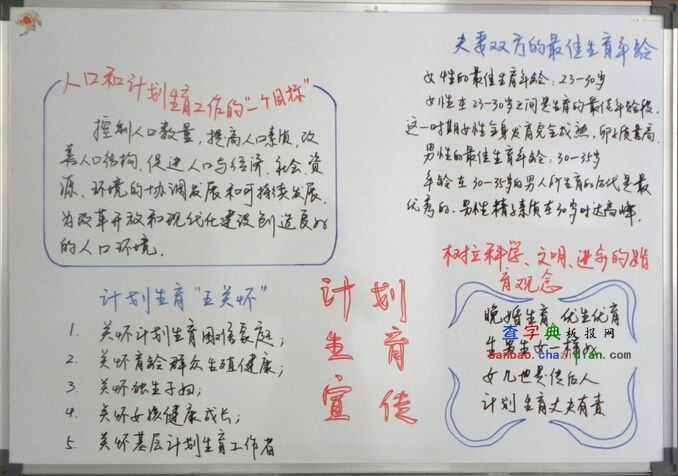 人口和计划生育工作的"一个目标"
控制人口数量,提高人口素质,改
善人口结构,促进人口与经济、社会、资
源、环境的协调发展和可持续发展,
为改革开放和现代化建设创造良好
的人口环境.
夫妻双方的最佳生育年龄
女性的最佳生育年龄:23-30岁
女性在23-30岁之间是生育的最佳年龄段,
这一时期女性全身发育完全成熟,卵子质量高.
男性的最佳生育年龄:30-35岁
年龄在30-35岁的男人所生育的后代是最
优秀的.男性精子素质在30岁时达高峰.
计划生育"五关怀"
1. 关怀计划生育困难家庭;
2. 关怀育龄群众生殖健康;
3. 关怀独生子女;
4. 关怀女孩健康成长;
5 关怀基层计划生育工作者
计划
生育
宣传
树立科学、文明、进步的婚
育观念
晚婚晚育 优生优育
生男生女一样好
女儿也是传后人
计划生育丈夫有责
查字典板报网
banbao.chazidian.com